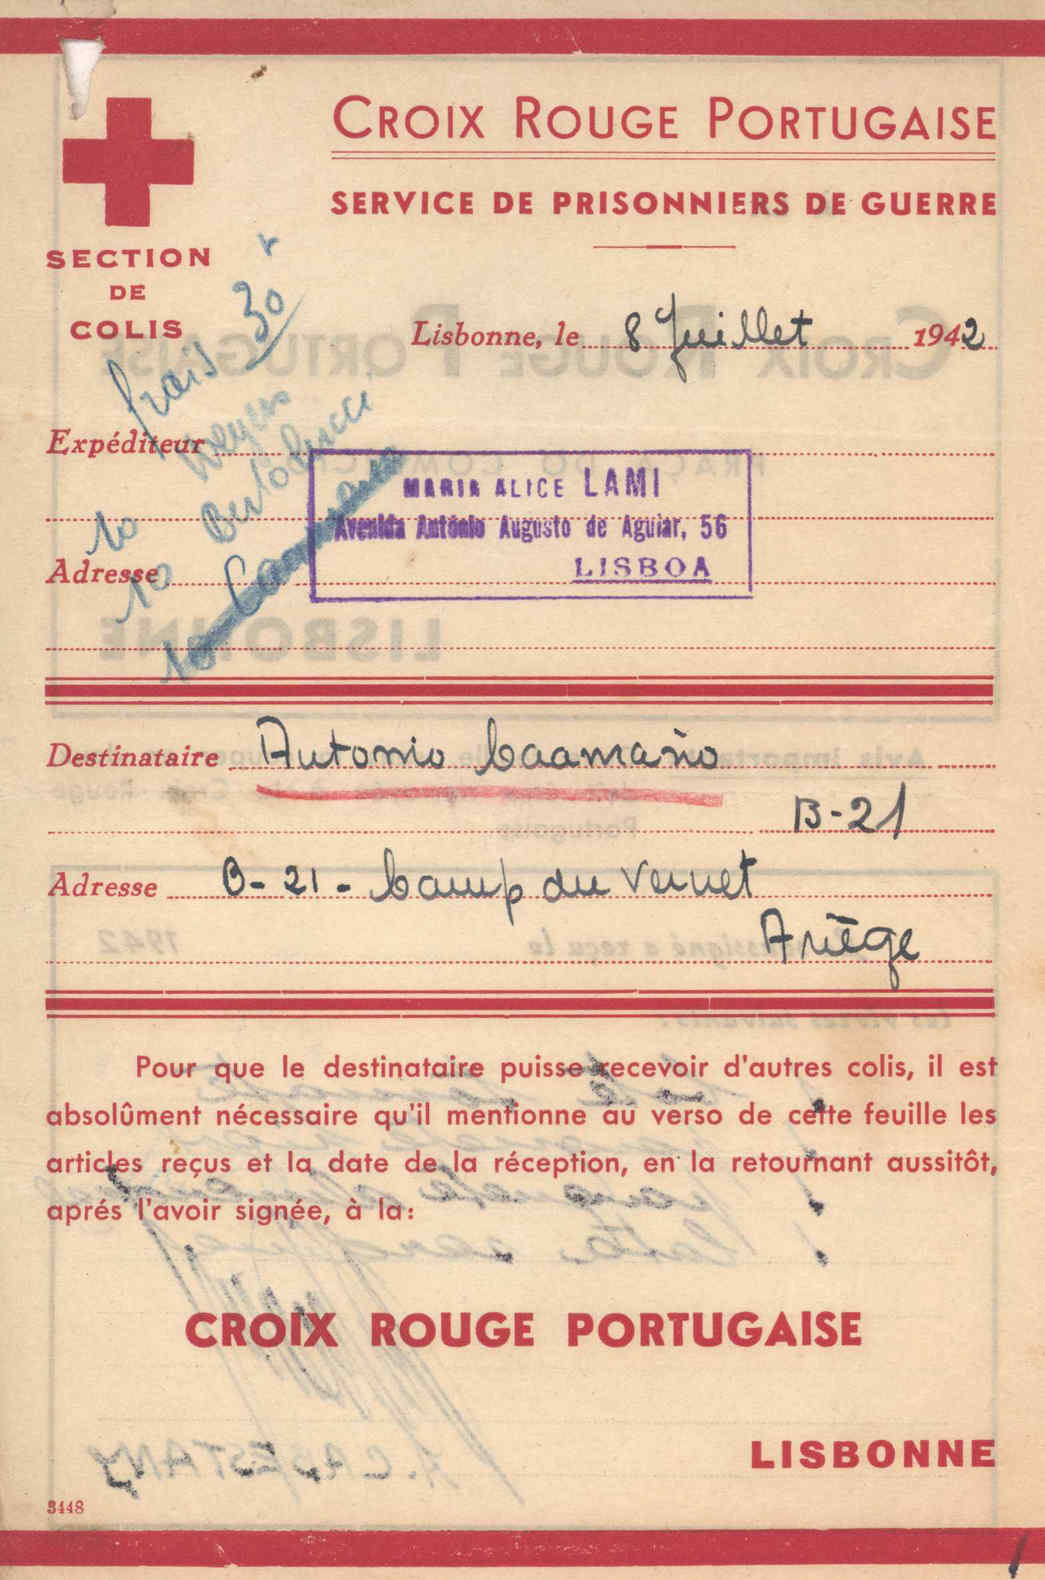 CROIX ROUGE PORTUGAISE
SERVICE DE PRISONNIERS DE GUERRE
SECTION
DE
COLIS
Lisbonne, le 8 Juillet 1942
frais 30
Expéditeur
10
10 Bertolucci
10 Caamano
MARIA ALICE LAMI
Avenida António Augusto de Aguiar, 56
LISBOA
Adresse
Destinataire Antonio Caamaño
B-21
Adresse B-21 - Camp du Vernet
Ariège
Pour que le destinataire puisse recevoir d'autres colis, il est
absolûment nécessaire qu'il mentionne au verso de cette feuille les
articles reçus et la date de la réception, en la retournant aussitôt,
aprés l'avoir signée, à la:
CROIX ROUGE PORTUGAISE
LISBONNE
3448